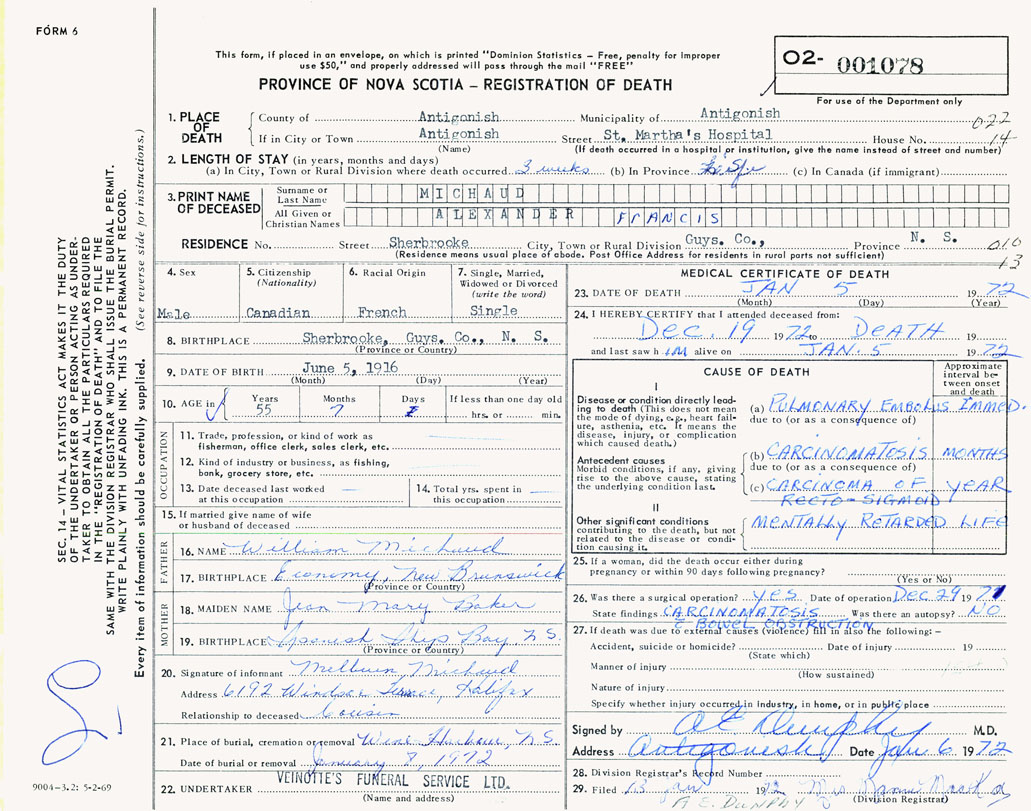 FORM 6
This form, if placed in an envelope, on which is printed "Dominion Statistics – Free, penalty for improper
use $50," and properly addressed will pass through the mail "FREE"
PROVINCE OF NOVA SCOTIA – REGISTRATION OF DEATH
O2- 001078
For use of the Department only
1. PLACE OF DEATH
County of Antigonish Municipality of Antigonish 022
If in City or Town Antigonish Street St. Martha's Hospital House No. 14
(Name) (If death occurred in a hospital or institution, give the name instead of street and number)
2. LENGTH OF STAY (in years, months and days)
(a) In City, Town or Rural Division where death occurred 3 weeks (b) In Province (c) In Canada (if immigrant)
3. PRINT NAME OF DECEASED
Surname or Last Name MICHAUD
All Given or Christian Names ALEXANDER FRANCIS
RESIDENCE No. Street Sherbrooke City, Town or Rural Division Guys. Co., Province N. S. 010
(Residence means usual place of abode. Post Office Address for residents in rural parts not sufficient) 13
4. Sex Male
5. Citizenship (Nationality) Canadian
6. Racial Origin French
7. Single, Married, Widowed or Divorced (write the word) Single
8. BIRTHPLACE Sherbrooke, Guys. Co., N. S.
(Province or Country)
9. DATE OF BIRTH June 5, 1916
(Month) (Day) (Year)
10. AGE in Years 55 Months 7 Days If less than one day old hrs. or min.
OCCUPATION
11. Trade, profession, or kind of work as
fisherman, office clerk, sales clerk, etc.
12. Kind of industry or business, as fishing,
bank, grocery store, etc.
13. Date deceased last worked
at this occupation
14. Total yrs. spent in
this occupation
15. If married give name of wife
or husband of deceased
FATHER
16. NAME William Michaud
17. BIRTHPLACE Economy, New Brunswick
(Province or Country)
MOTHER
18. MAIDEN NAME Jean Mary Baker
19. BIRTHPLACE Spanish Ship Bay N.S.
(Province or Country)
20. Signature of informant Michaud
Address 6192 Windsor Halifax
Relationship to deceased Cousin
21. Place of burial, cremation or removal Wine Harbour, N.S.
Date of burial or removal January 8, 1972
22. UNDERTAKER VEINOTTE'S FUNERAL SERVICE LTD.
(Name and address)
MEDICAL CERTIFICATE OF DEATH
23. DATE OF DEATH JAN 5 1972
(Month) (Day) (Year)
24. I HEREBY CERTIFY that I attended deceased from:
DEC. 19 1972 to DEATH 19
and last saw him alive on JAN. 5 1972
CAUSE OF DEATH
Approximate interval between onset and death
I
Disease or condition directly leading to death (This does not mean the mode of dying, e.g., heart failure, asthenia, etc. It means the disease, injury, or complication which caused death.)
(a) PULMONARY EMBOLUS IMMED.
due to (or as a consequence of)
Antecedent causes
Morbid conditions, if any, giving rise to the above cause, stating the underlying condition last.
(b) CARCINOMATOSIS MONTHS
due to (or as a consequence of)
(c) CARCINOMA OF YEAR
RECTO-SIGMOID
II
Other significant conditions
contributing to the death, but not related to the disease or condition causing it.
MENTALLY RETARDED LIFE
25. If a woman, did the death occur either during
pregnancy or within 90 days following pregnancy?
(Yes or No)
26. Was there a surgical operation? YES Date of operation DEC 29 1971
State findings CARCINOMATOSIS Was there an autopsy? NO
BOWEL OBSTRUCTION
27. If death was due to external causes (violence) fill in also the following: –
Accident, suicide or homicide? Date of injury 19
(State which)
Manner of injury
(How sustained)
Nature of injury
Specify whether injury occurred in industry, in home, or in public place
Signed by A E Dunphy M.D.
Address Antigonish Date Jan 6 1972
28. Division Registrar's Record Number
29. Filed 13 Jan 1972 Mrs
(Division Registrar)
A.E. DUNPHY
SEC. 14 – VITAL STATISTICS ACT MAKES IT THE DUTY
OF THE UNDERTAKER OR PERSON ACTING AS UNDER-
TAKER TO OBTAIN ALL THE PARTICULARS REQUIRED
IN THE "REGISTRATION OF DEATH" AND TO FILE THE
SAME WITH THE DIVISION REGISTRAR WHO SHALL ISSUE THE BURIAL PERMIT.
WRITE PLAINLY WITH UNFADING INK. THIS IS A PERMANENT RECORD.
Every item of information should be carefully supplied. (See reverse side for instructions.)
9004-3.2: 5-2-69